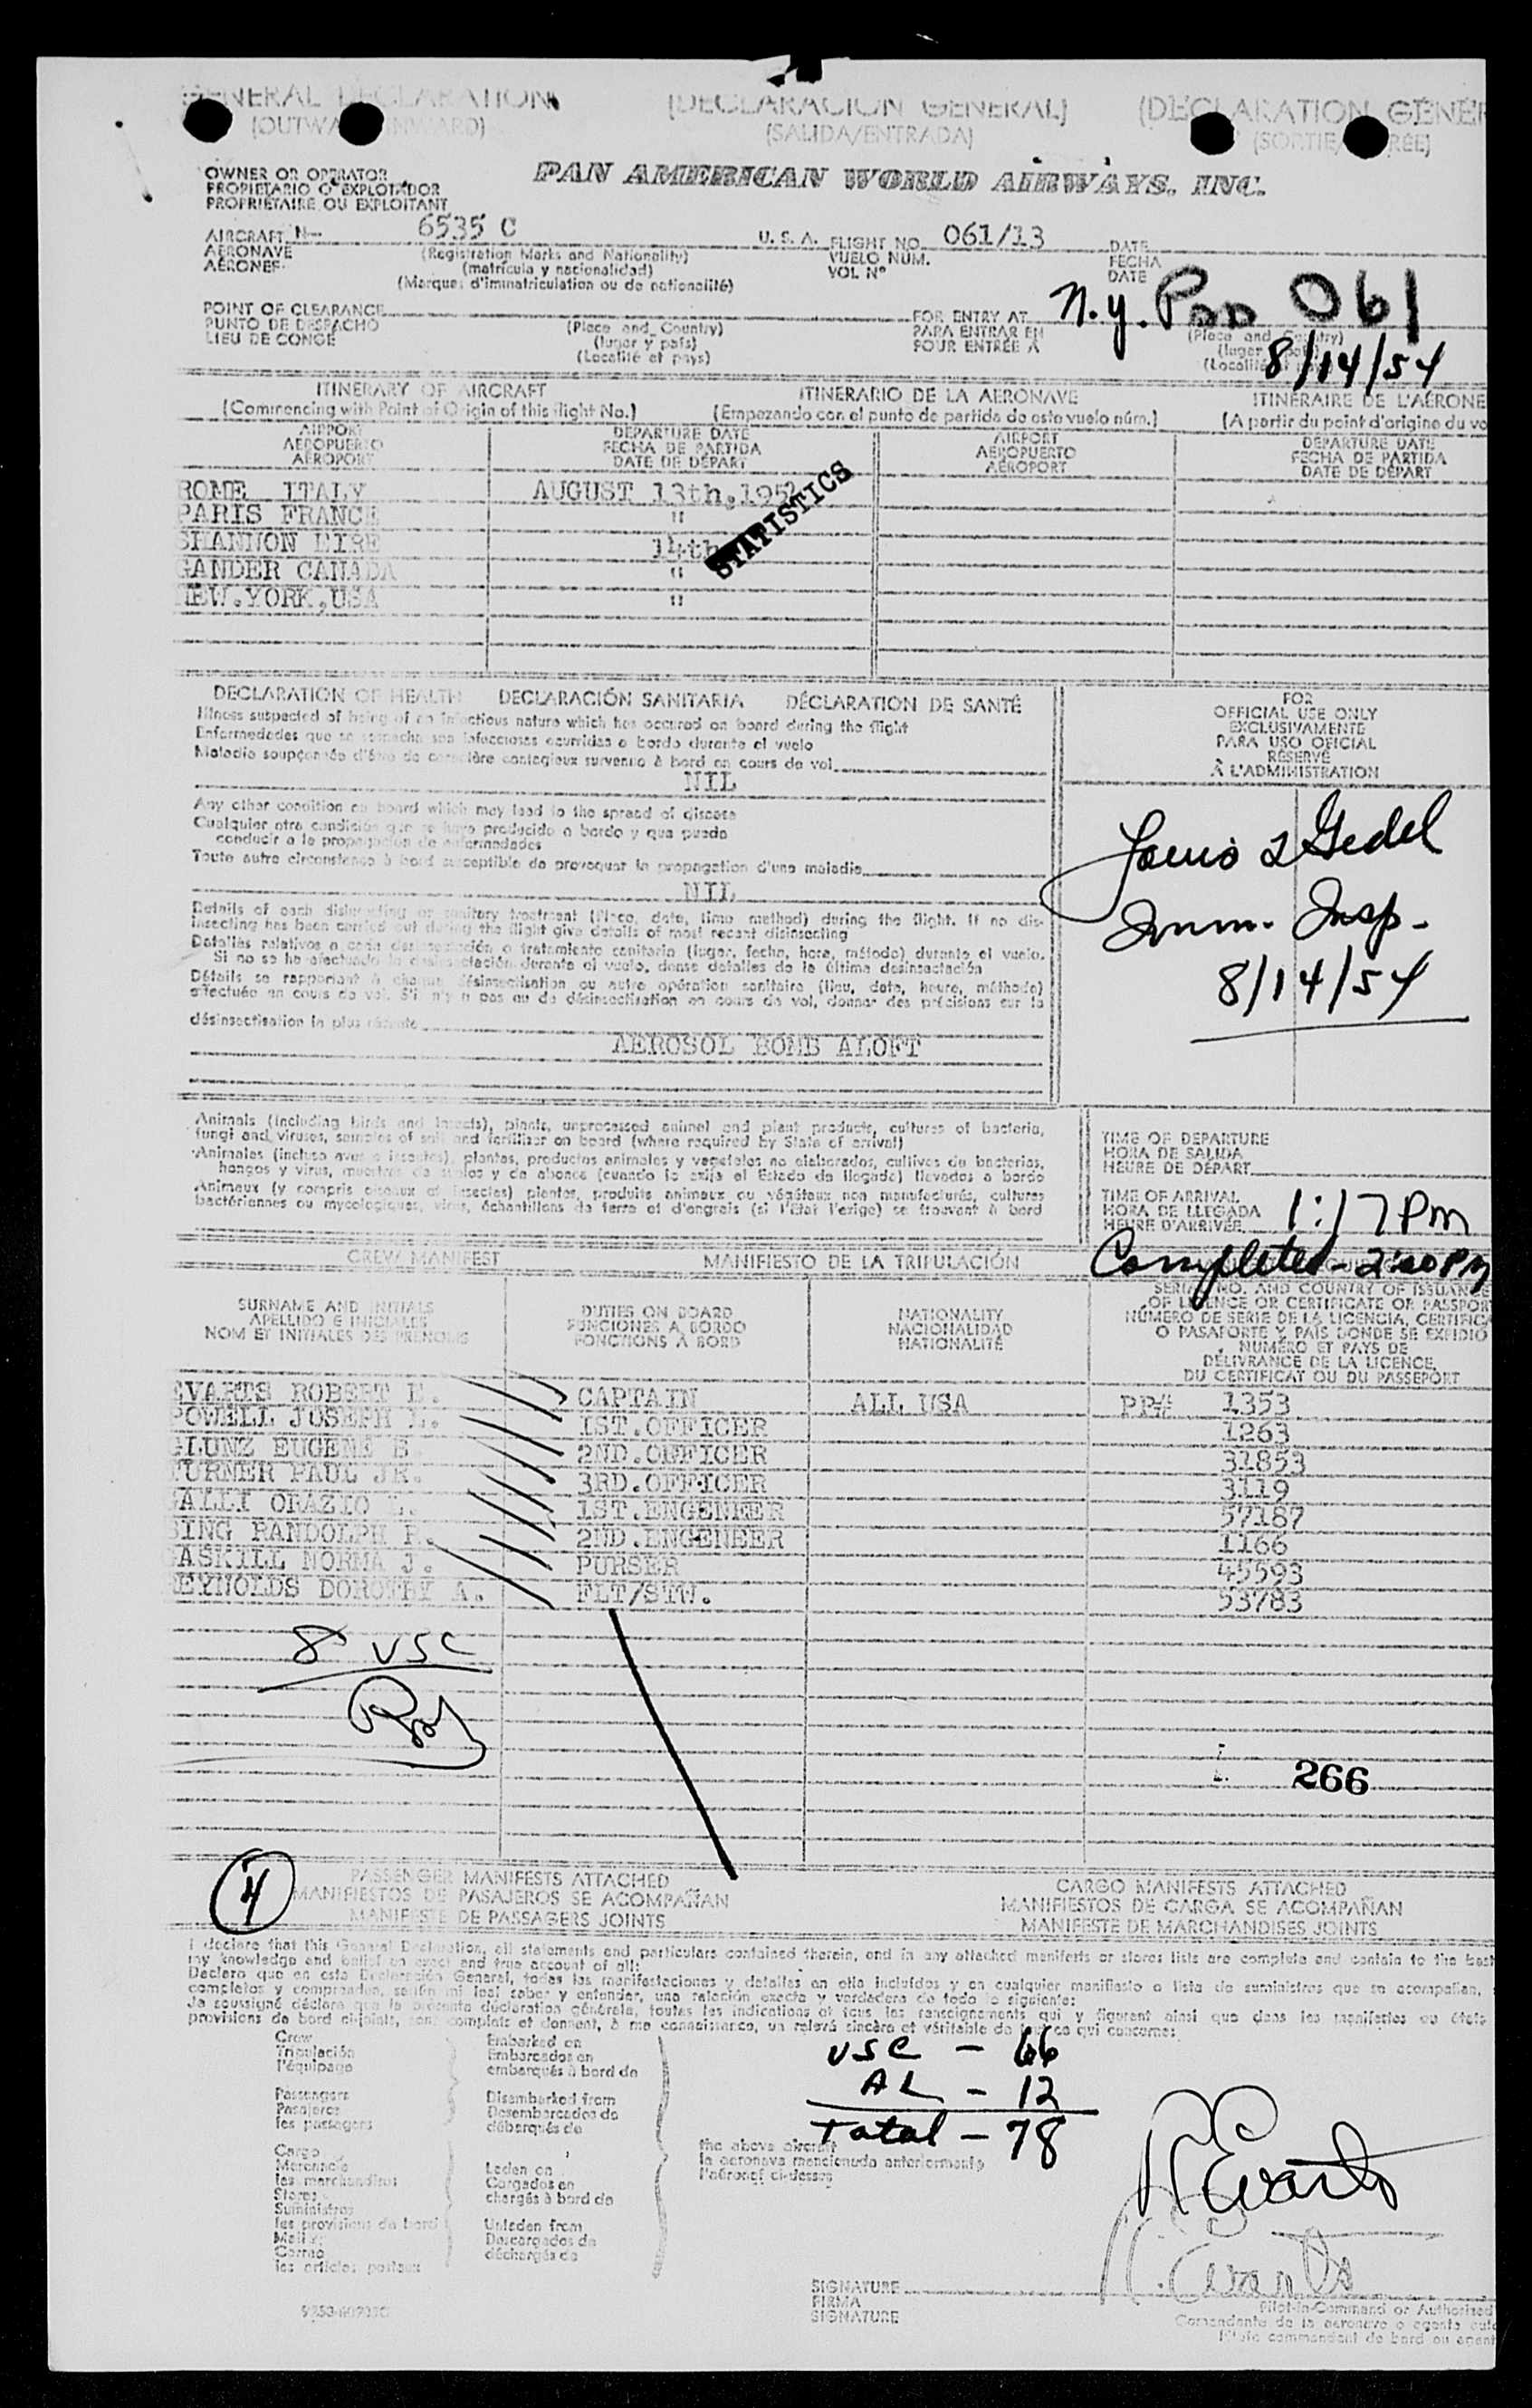 GENERAL DECLARATION [DECLARACION GENERAL] (DÉCLARATION GÉNÉR
(SALIDA/ENTRADA)
OWNER OR OPERATOR
PROPIETARIO O EXPLOTADOR
PROPRIÉTAIRE OU EXPLOITANT
PAN AMERICAN WORLD AIRWAYS, INC.
AIRCRAFT N- 6535 C U. S. A. FLIGHT NO. 061/13 DATE
AERONAVE (Registration Marks and Nationality) VUELO NÚM. FECHA
AÉRONEF (matrícula y nacionalidad) VOL Nº DATE
(Marques d'immatriculation ou de nationalité)
POINT OF CLEARANCE FOR ENTRY AT N.Y. Paa 061
PUNTO DE DESPACHO (Place and Country) PARA ENTRAR EN
LIEU DE CONGÉ (lugar y país) POUR ENTRÉE À
(Localité et pays) 8/14/54
ITINERARY OF AIRCRAFT ITINERARIO DE LA AERONAVE ITINÉRAIRE DE L'AÉRONE
(Commencing with Point of Origin of this flight No.) (Empezando con el punto de partida de este vuelo núm.) (A partir du point d'origine du vo
AIRPORT DEPARTURE DATE AIRPORT DEPARTURE DATE
AEROPUERTO FECHA DE PARTIDA AEROPUERTO FECHA DE PARTIDA
AÉROPORT DATE DE DÉPART AÉROPORT DATE DE DÉPART
ROME ITALY AUGUST 13th,195
PARIS FRANCE "
SHANNON EIRE 14th
STATISTICS
GANDER CANADA "
NEW.YORK,USA "
DECLARATION OF HEALTH DECLARACIÓN SANITARIA DÉCLARATION DE SANTÉ
Illness suspected of being of an infectious nature which has occurred on board during the flight
Enfermedades que se sospecha son infecciosas ocurridas a bordo durante el vuelo
Maladie soupçonnée d'être de caractère contagieux survenue à bord en cours de vol
NIL
Any other condition on board which may lead to the spread of disease
Cualquier otra condición que se haya producido a bordo y que pueda
conducir a la propagación de enfermedades
Toute autre circonstance à bord susceptible de provoquer la propagation d'une maladie
NIL
Details of each disinsecting or sanitary treatment (Place, date, time method) during the flight. If no dis-
insecting has been carried out during the flight give details of most recent disinsecting
Detalles relativos a cada desinsectación o tratamiento sanitario (lugar, fecha, hora, método) durante el vuelo.
Si no se ha efectuado la desinsectación durante el vuelo, dense detalles de la última desinsectación
Détails se rapportant à chaque désinsectisation ou autre opération sanitaire (lieu, date, heure, méthode)
effectuée en cours de vol. S'il n'y a pas eu de désinsectisation en cours de vol, donner des précisions sur la
désinsectisation la plus récente
AEROSOL BOMB ALOFT
FOR
OFFICIAL USE ONLY
EXCLUSIVAMENTE
PARA USO OFICIAL
RÉSERVÉ
À L'ADMINISTRATION
Louis L Gedel
Imm. Insp.
8/14/54
Animals (including birds and insects), plants, unprocessed animal and plant products, cultures of bacteria,
fungi and viruses, samples of soil and fertilizer on board (where required by State of arrival)
Animales (incluso aves e insectos), plantas, productos animales y vegetales no elaborados, cultivos de bacterias,
hongos y virus, muestras de suelos y de abonos (cuando lo exija el Estado de llegada) llevados a bordo
Animaux (y compris oiseaux et insectes) plantes, produits animaux ou végétaux non manufacturés, cultures
bactériennes ou mycologiques, virus, échantillons de terre et d'engrais (si l'État l'exige) se trouvant à bord
TIME OF DEPARTURE
HORA DE SALIDA
HEURE DE DÉPART
TIME OF ARRIVAL
HORA DE LLEGADA
HEURE D'ARRIVÉE 1:17 PM
Completed - 2:00 PM
CREW MANIFEST MANIFIESTO DE LA TRIPULACIÓN
SURNAME AND INITIALS DUTIES ON BOARD NATIONALITY
APELLIDO E INICIALES FUNCIONES A BORDO NACIONALIDAD
NOM ET INITIALES DES PRÉNOMS FONCTIONS À BORD NATIONALITÉ
SERIAL NO. AND COUNTRY OF ISSUANCE
OF LICENCE OR CERTIFICATE OR PASSPOR
NÚMERO DE SERIE DE LA LICENCIA, CERTIFICA
O PASAPORTE Y PAÍS DONDE SE EXPIDIÓ
NUMÉRO ET PAYS DE
DÉLIVRANCE DE LA LICENCE,
DU CERTIFICAT OU DU PASSEPORT
EVARTS ROBERT CAPTAIN ALL USA PP# 1353
POWELL JOSEPH L. 1ST.OFFICER 1263
GLUNZ EUGENE B. 2ND.OFFICER 31853
TURNER PAUL JR. 3RD.OFFICER 3119
ALLI ORAZIO L. 1ST.ENGENEER 57187
SING RANDOLPH 2ND.ENGENEER 1166
ASKILL NORMA J. PURSER 45593
EYNOLDS DOROTHY A. FLT/STW. 53783
8 USC
266
4
PASSENGER MANIFESTS ATTACHED CARGO MANIFESTS ATTACHED
MANIFIESTOS DE PASAJEROS SE ACOMPAÑAN MANIFIESTOS DE CARGA SE ACOMPAÑAN
MANIFESTE DE PASSAGERS JOINTS MANIFESTE DE MARCHANDISES JOINTS
I declare that this General Declaration, all statements and particulars contained therein, and in any attached manifests or stores lists are complete and contain to the best
my knowledge and belief an exact and true account of all:
Declaro que en esta Declaración General, todas las manifestaciones y detalles en ella incluídos y en cualquier manifiesto o lista de suministros que se acompañan,
completos y comprenden, según mi leal saber y entender, una relación exacta y verdadera de todo lo siguiente:
Je soussigné déclare que la présente déclaration générale, toutes les indications et tous les renseignements qui y figurent ainsi que dans les manifestes ou états
provisions de bord ci-joints, sont complets et donnent, à ma connaissance, un relevé sincère et véritable de tout ce qui concerne:
Crew Embarked on
Tripulación Embarcados en
l'équipage embarqués à bord de
USC - 66
AL - 12
Total - 78
Passengers Disembarked from
Pasajeros Desembarcados de
les passagers débarqués de
the above aircraft
la aeronave mencionada anteriormente
l'aéronef ci-dessus
Cargo
Mercancía Laden on
les marchandises Cargados en
Stores chargés à bord de
Suministros
les provisions de bord Unladen from
Mail Descargados de
Correo déchargés de
les articles postaux
R Evarts
R. Evarts
SIGNATURE
FIRMA
SIGNATURE
Pilot-in-Command or Authorised
Comandante de la aeronave o agente auto
Pilote commandant de bord ou agent